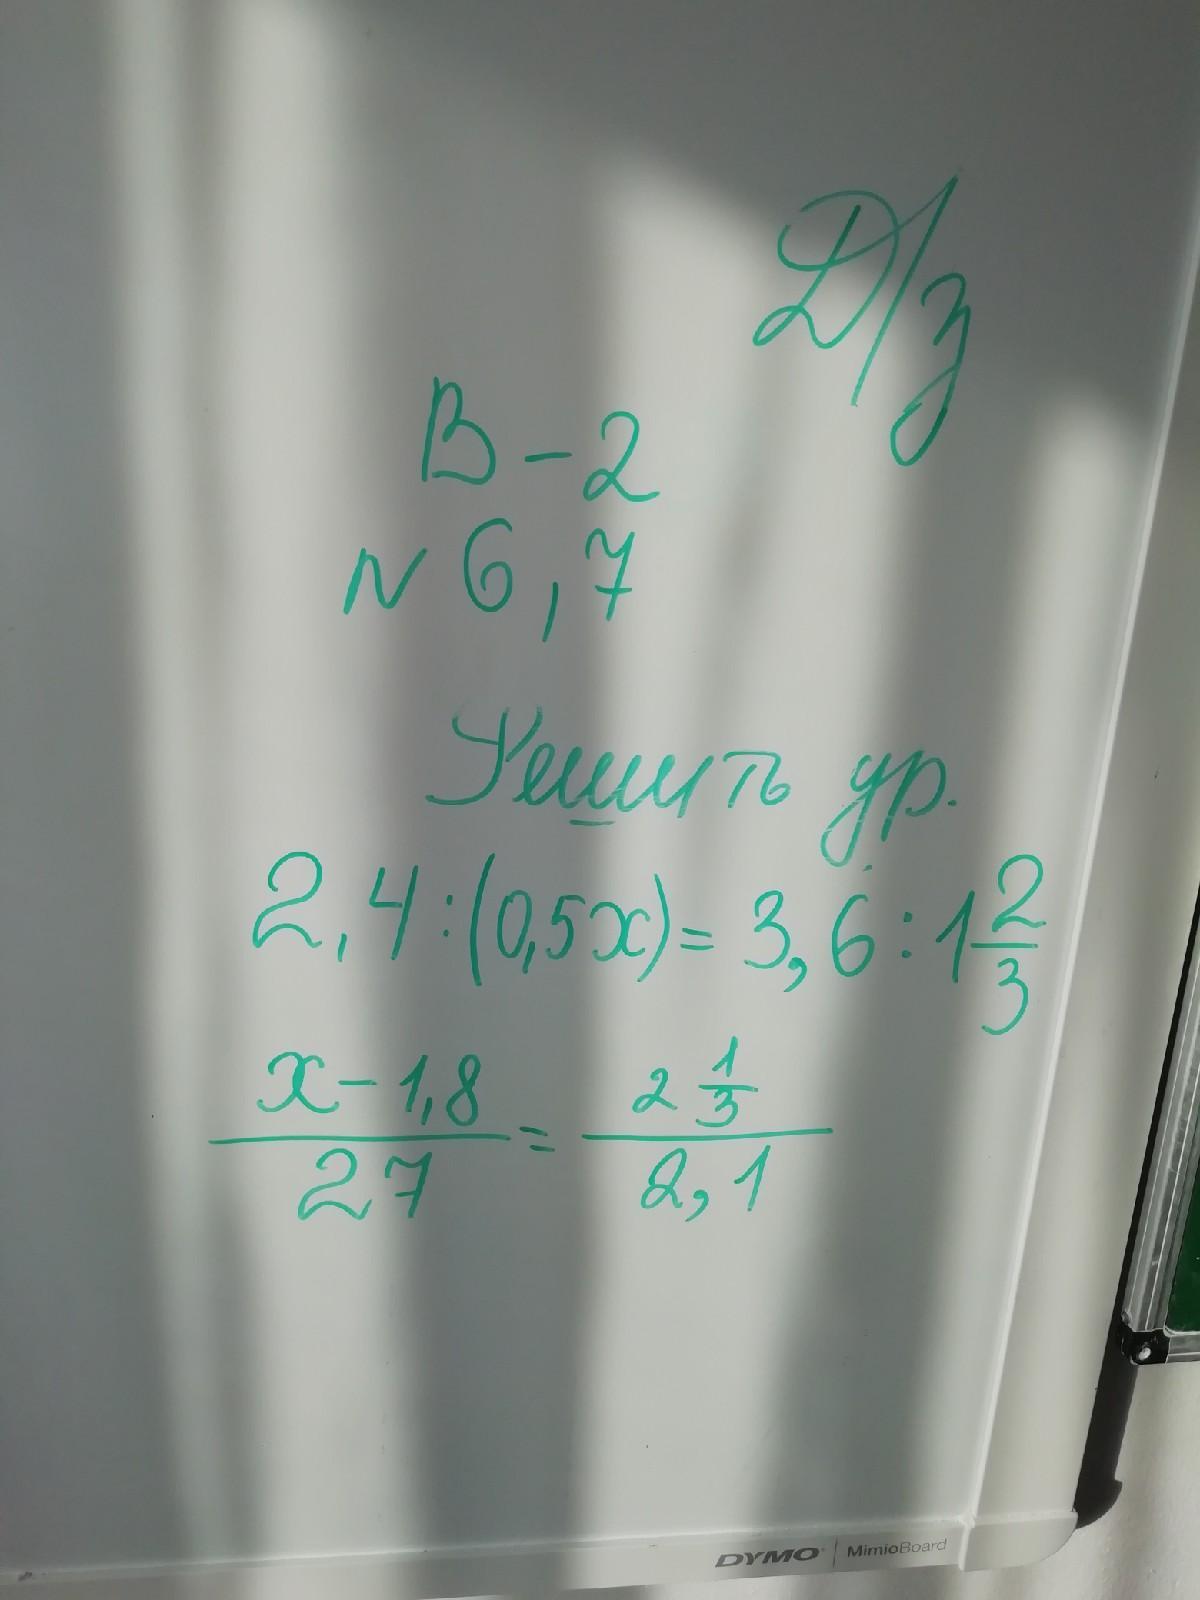 Д/з
В-2
N 6,7
Решить ур.
2,4:(0,5x)=3,6:1 2/3
x-1,8/27=2 1/3/2,1
DYMO MimioBoard